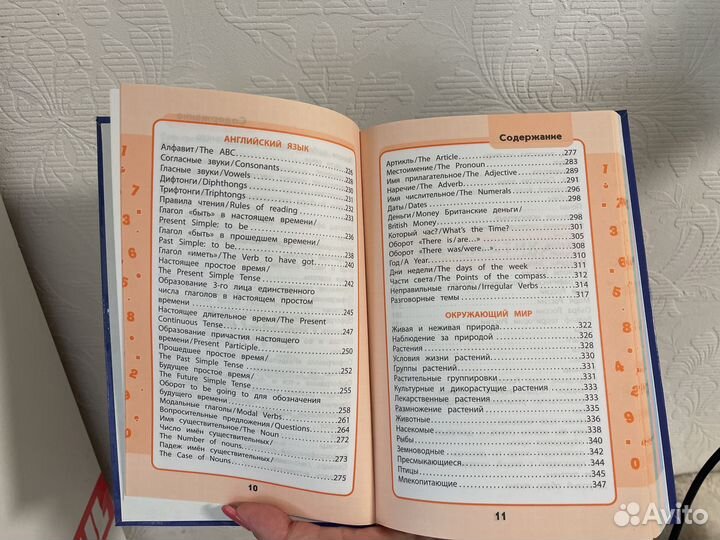 АНГЛИЙСКИЙ ЯЗЫК
Алфавит/The ABC
Согласные звуки/Consonants 226
Гласные звуки/Vowels 228
Дифтонги/Diphthongs 230
Трифтонги/Triphtongs 231
Правила чтения/Rules of reading 232
Глагол «быть» в настоящем времени/
Present Simple; to be 236
Глагол «быть» в прошедшем времени/
Past Simple: to be 238
Глагол «иметь»/The Verb to have got 240
Настоящее простое время/
The Present Simple Tense 242
Образование 3-го лица единственного
числа глаголов в настоящем простом
времени 245
Настоящее длительное время/The Present
Continuous Tense 247
Образование причастия настоящего
времени/Present Participle 250
Прошедшее простое время/
The Past Simple Tense 252
Будущее простое время/
The Future Simple Tense 255
Оборот to be going to для обозначения
будущего времени 258
Модальные глаголы/Modal Verbs 261
Вопросительные предложения/Questions 264
Имя существительное/The Noun 272
Число имён существительных/
The Number of nouns 273
Падеж имён существительных/
The Case of Nouns 275
10
Содержание
Артикль/The Article 277
Местоимение/The Pronoun 283
Имя прилагательное/The Adjective 289
Наречие/The Adverb 291
Имя числительное/The Numerals 296
Даты/Dates
Деньги/Money Британские деньги/
British Money 298
Который час?/What's the Time? 301
Оборот «There is/are...» 305
Оборот «There was/were...» 308
Год/A Year 310
Дни недели/The days of the week 311
Части света/The Points of the compass 312
Неправильные глаголы/Irregular Verbs 314
Разговорные темы 317
ОКРУЖАЮЩИЙ МИР
Живая и неживая природа 322
Наблюдение за природой 326
Растения 328
Условия жизни растений 330
Группы растений 331
Растительные группировки 331
Культурные и дикорастущие растения 333
Лекарственные растения 333
Размножение растений 335
Животные 336
Насекомые 338
Рыбы 340
Земноводные 342
Пресмыкающиеся 344
Птицы 345
Млекопитающие 347
11
Avito